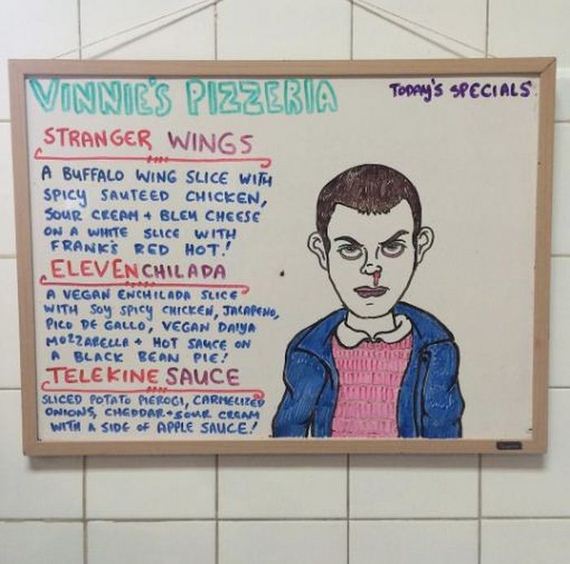 VINNIE'S PIZZERIA
TODAY'S SPECIALS
STRANGER WINGS
A BUFFALO WING SLICE WITH
SPICY SAUTEED CHICKEN,
SOUR CREAM + BLEU CHEESE
ON A WHITE SLICE WITH
FRANK'S RED HOT!
ELEVENCHILADA
A VEGAN ENCHILADA SLICE
WITH SOY SPICY CHICKEN, JALAPENO,
PICO DE GALLO, VEGAN DAIYA
MOZZARELLA + HOT SAUCE ON
A BLACK BEAN PIE!
TELEKINE SAUCE
SLICED POTATO PIEROGI, CARMELIZED
ONIONS, CHEDDAR + SOUR CREAM
WITH A SIDE OF APPLE SAUCE!